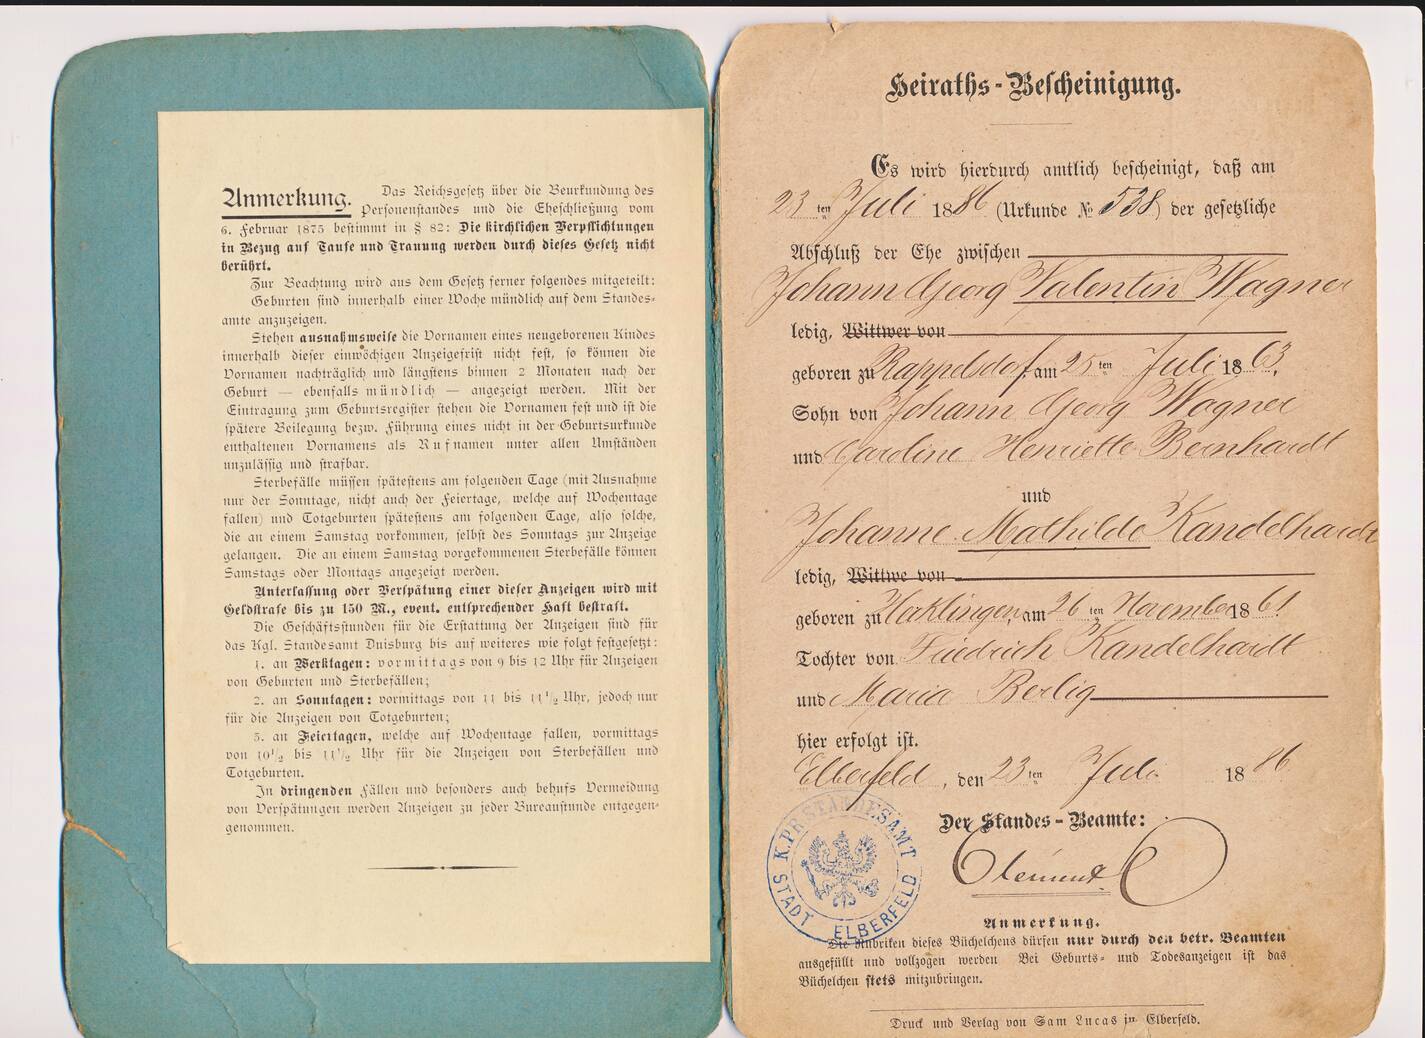 Anmerkung. Das Reichsgesetz über die Beurkundung des
Personenstandes und die Eheschließung vom
6. Februar 1875 bestimmt in § 82: Die kirchlichen Verpflichtungen
in Bezug auf Taufe und Trauung werden durch dieses Gesetz nicht
berührt.
Zur Beachtung wird aus dem Gesetz ferner folgendes mitgeteilt:
Geburten sind innerhalb einer Woche mündlich auf dem Standes-
amte anzuzeigen.
Stehen ausnahmsweise die Vornamen eines neugeborenen Kindes
innerhalb dieser einwöchigen Anzeigefrist nicht fest, so können die
Vornamen nachträglich und längstens binnen 2 Monaten nach der
Geburt — ebenfalls mündlich — angezeigt werden. Mit der
Eintragung zum Geburtsregister stehen die Vornamen fest und ist die
spätere Beilegung bezw. Führung eines nicht in der Geburtsurkunde
enthaltenen Vornamens als Rufnamen unter allen Umständen
unzulässig und strafbar.
Sterbefälle müssen spätestens am folgenden Tage (mit Ausnahme
nur der Sonntage, nicht auch der Feiertage, welche auf Wochentage
fallen) und Totgeburten spätestens am folgenden Tage, also solche,
die an einem Samstag vorkommen, selbst des Sonntags zur Anzeige
gelangen. Die an einem Samstag vorgekommenen Sterbefälle können
Samstags oder Montags angezeigt werden.
Unterlassung oder Verspätung einer dieser Anzeigen wird mit
Geldstrafe bis zu 150 M., event. entsprechender Haft bestraft.
Die Geschäftsstunden für die Erstattung der Anzeigen sind für
das Kgl. Standesamt Duisburg bis auf weiteres wie folgt festgesetzt:
1. an Werktagen: vormittags von 9 bis 12 Uhr für Anzeigen
von Geburten und Sterbefällen;
2. an Sonntagen: vormittags von 11 bis 11½ Uhr, jedoch nur
für die Anzeigen von Totgeburten;
3. an Feiertagen, welche auf Wochentage fallen, vormittags
von 10½ bis 11½ Uhr für die Anzeigen von Sterbefällen und
Totgeburten.
In dringenden Fällen und besonders auch behufs Vermeidung
von Verspätungen werden Anzeigen zu jeder Bureaustunde entgegen-
genommen.
Heiraths-Bescheinigung.
Es wird hierdurch amtlich bescheinigt, daß am
23ten Juli 1886 (Urkunde № 538) der gesetzliche
Abschluß der Ehe zwischen
Johann Georg Valentin Wagner
ledig, Wittwer von
geboren zu Rappelsdorf am 25ten Juli 1863,
Sohn von Johann Georg Wagner
und Caroline Henriette Bernhardt
und
Johanne Mathilde Kandelhardt
ledig, Wittwe von
geboren zu Hecklingen, am 26ten November 1861
Tochter von Friedrich Kandelhardt
und Maria Berlig
hier erfolgt ist.
Elberfeld, den 23ten Juli 1886
Der Standes-Beamte:
K. PR. STANDESAMT
STADT ELBERFELD
Anmerkung.
Die Rubriken dieses Büchelchens dürfen nur durch den betr. Beamten
ausgefüllt und vollzogen werden Bei Geburts- und Todesanzeigen ist das
Büchelchen stets mitzubringen.
Druck und Verlag von Sam Lucas in Elberfeld.